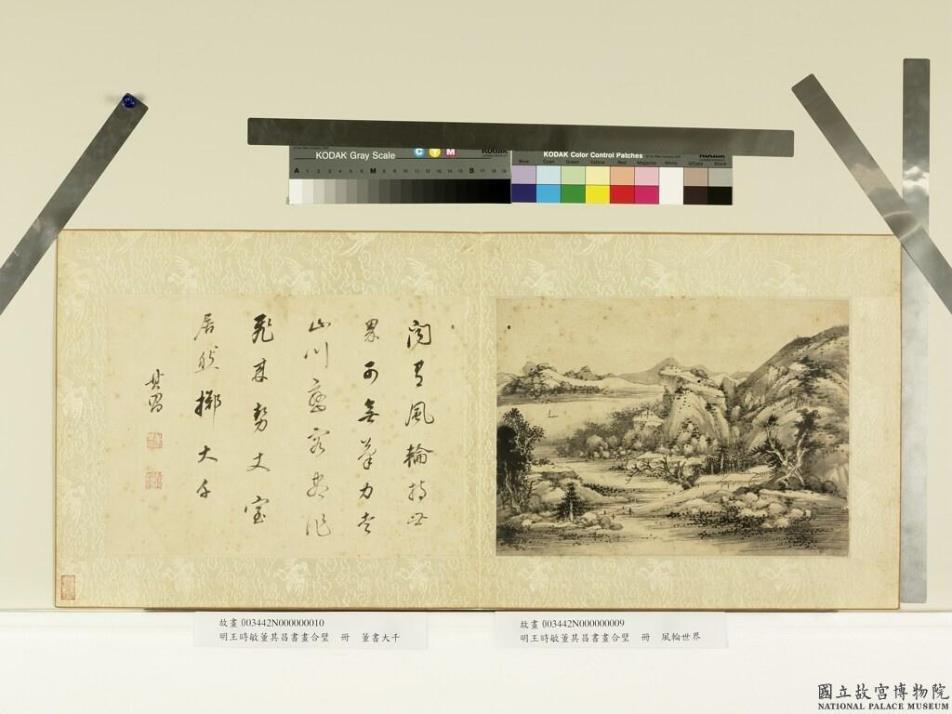 KODAK Gray Scale
C Y M
Kodak
A 1 2 3 4 5 6 M 8 9 10 11 12 13 14 15 B 17 18 19
KODAK Color Control Patches
Blue Cyan Green Yellow Red Magenta White 3/Color Black
聞有風輪持世
界可無筆力走
山川巒容盡作
飛來勢丈室
居然擲大千
其昌
故畫 003442N000000010
明王時敏董其昌書畫合璧 冊 董書大千
故畫 003442N000000009
明王時敏董其昌書畫合璧 冊 風輪世界
國立故宮博物院
NATIONAL PALACE MUSEUM